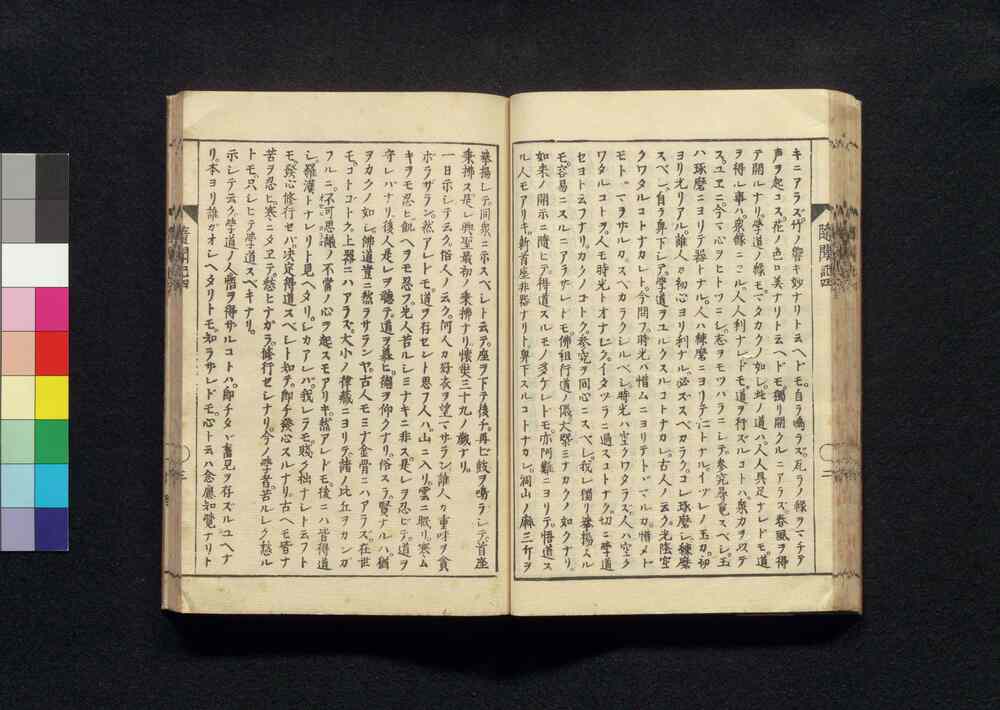 隨聞記四
二
キニアラズ竹ノ響キ妙ナリト云ヘドモ。自ラ鳴ラズ。瓦ラノ縁ヲマチテ
声ヲ起コス。花ノ色ロ美ナリト云ヘドモ。獨リ開クルニアラズ。春風ヲ得
テ開ルナリ。學道ノ縁モ。マタカクノ如シ。此ノ道ハ。人人具足ナレドモ。道
ヲ得ル事ハ。衆縁ニコル。人人利ナレドモ。道ヲ行ズルコトハ。衆力ヲ以テ
ス。ユエニ。今マ心ヲヒトツニシ。志ヲモツハラニシテ。參究尋覓スベシ。玉
ハ琢磨ニヨリテ器トナル。人ハ練磨ニヨリテ。仁トナル。イヅレノ玉カ。初
ヨリ光リアル。誰人カ初心ヨリ利ナル。必ズスベカラク。コレ琢磨シ練磨
スベシ。自ラ卑下シテ。學道ヲユルクスルコトナカレ。古人ノ云ク光陰空
クワタルコトナカレト。今問フ。時光ハ惜ムニヨリテトドマルカ。惜メド
モトドマラザルカ。スベカラクシルベシ。時光ハ空クワタラズ。人ハ空ク
ワタルコトヲ。人モ時光トオナジク。イタヅラニ過スコトナク。切ニ學道
セヨト云フナリ。カクノゴトク。參究ヲ同心ニスベシ。我レ獨リ擧揚スル
モ。容易ニスルニアラザレドモ。佛祖行道ノ儀。大槩ミナカクノ如クナリ。
如来ノ開示ニ隨ヒテ。得道スルモノ多ケレドモ。亦阿難ニヨリテ。悟道ス
ル人モアリキ。新首座非器ナリト。卑下スルコトナカレ。洞山ノ麻三斤ヲ
擧揚シテ。同衆ニ示スベシト云テ。座ヲ下テ後チ。再ビ鼓ヲ鳴ラシテ。首座
秉拂ス。是レ興聖最初ノ秉拂ナリ。懐奘三十九ノ歳ナリ。
一日示シテ云ク。俗人ノ云ク。何人カ好衣ヲ望マザラン。誰人カ重味ヲ貪
ボラザラン。然アレドモ道ヲ存セント思フ人ハ。山ニ入リ。雲ニ眠リ。寒ム
キヲモ忍ヒ。飢ヘヲモ忍フ。先人苦ルシミナキニ非ス。是レヲ忍ビテ。道ヲ
守レバナリ。後人是レヲ聽テ。道ヲ慕ヒ。德ヲ仰クナリ。俗スラ。賢ナルハ。猶
ヲカクノ如シ。佛道豈ニ然ラザランヤ。古人モミナ金骨ニハアラズ。在世
モコトゴトク。上器ニハアラズ。大小ノ律藏ニヨリテ。諸ノ比丘ヲカンガ
フルニ。不可思議ノ不當ノ心ヲ起スモアリキ。然アレドモ後ニハ皆得道
シ。羅漢トナレリト見ヘタリ。シカアレハ。我レラモ賤ク拙ナシト云フト
モ。発心修行セハ。決定得道スベシト知テ。即チ発心スルナリ。古ヘモ皆ナ
苦ヲ忍ヒ。寒ニタエテ。愁ヒナガラ。修行セシナリ。今ノ學者。苦ルシク愁ル
トモ。只シヒテ學道スベキナリ。
示シテ云ク。學道ノ人。悟ヲ得ザルコトハ。即チタヾ舊見ヲ存ズルユヘナ
リ。本ヨリ誰カオシヘタリトモ。知ラザレドモ。心ト云ハ念慮知覺ナリト
隨聞記四
三